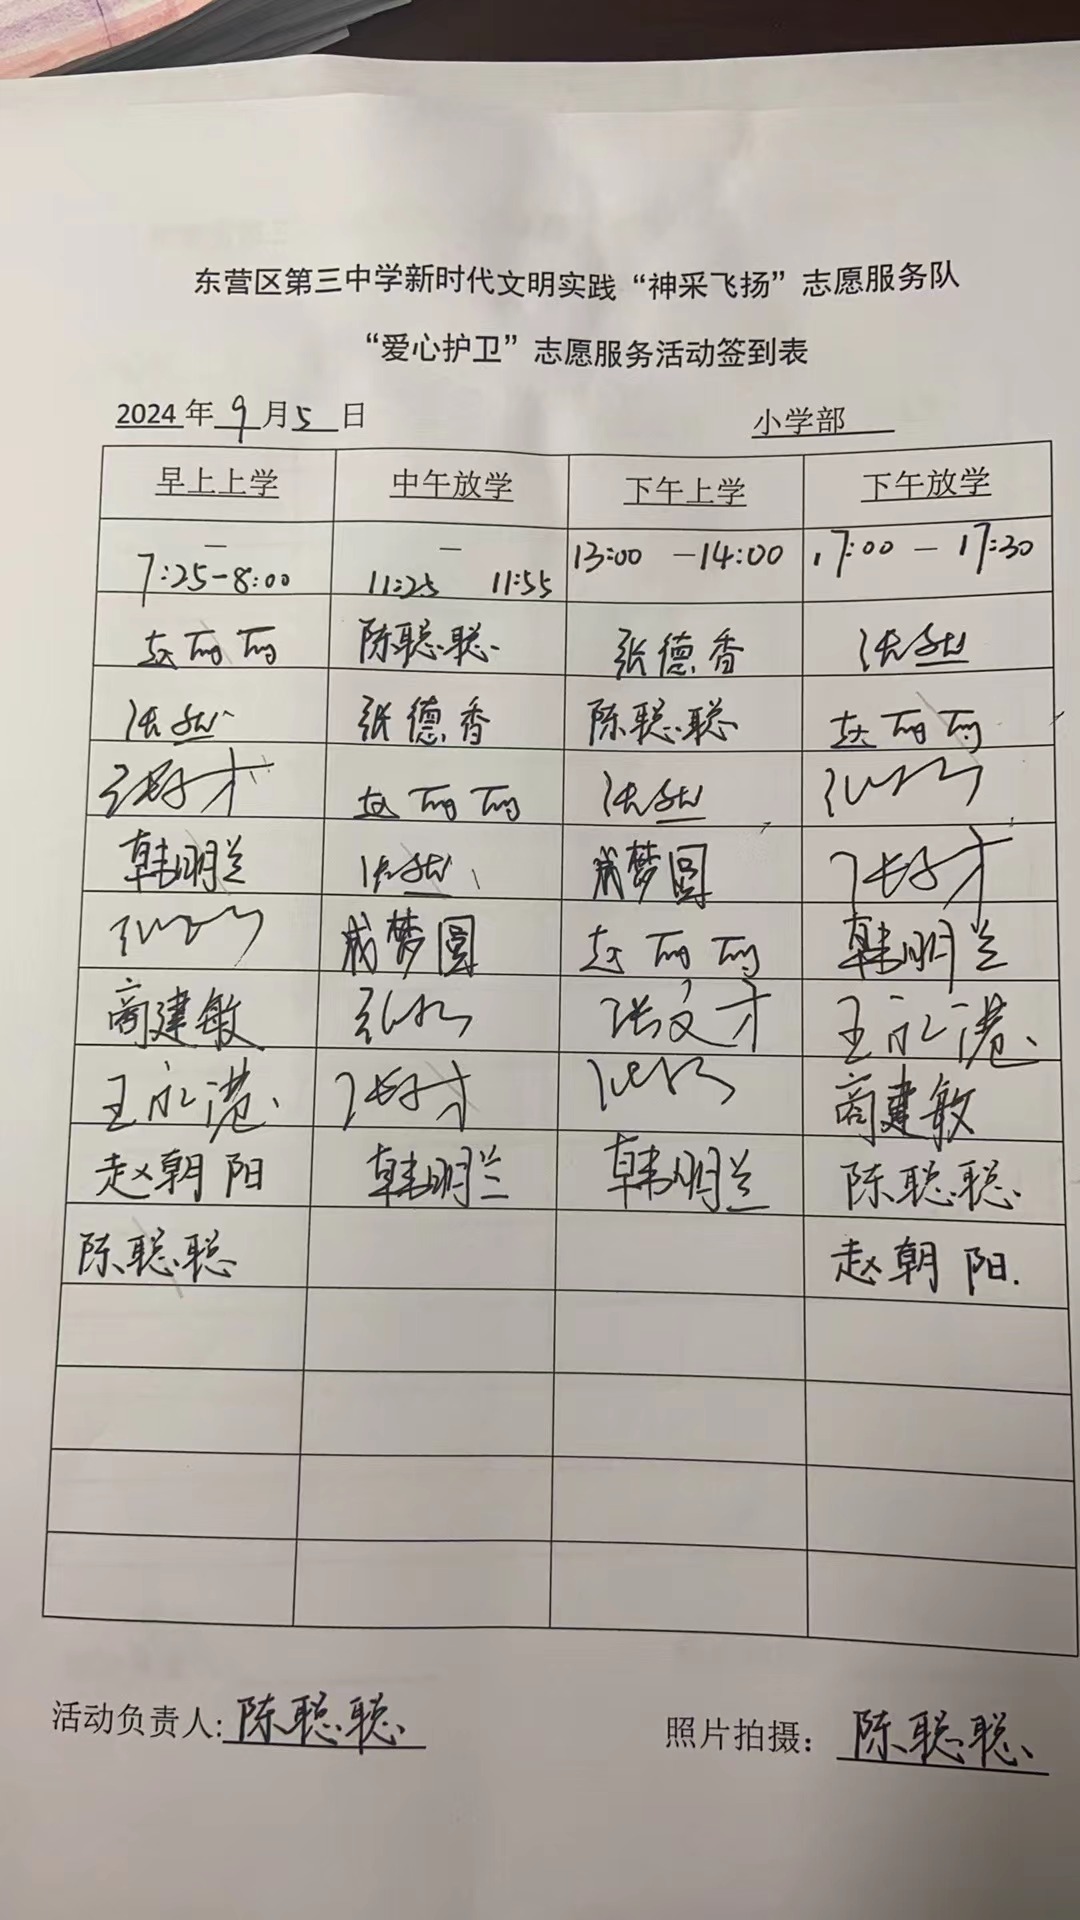 东营区第三中学新时代文明实践“神采飞扬”志愿服务队
“爱心护卫”志愿服务活动签到表
2024年9月5日 小学部
早上上学 中午放学 下午上学 下午放学
7:25-8:00 11:25 — 11:55 13:00 - 14:00 17:00 - 17:30
赵丽丽 陈聪聪 张德香
张德香 陈聪聪 赵丽丽
赵丽丽
韩明兰 成梦圆
成梦圆 赵丽丽 韩明兰
商建敏 张文才 王永港
王永港 商建敏
赵朝阳 韩明兰 韩明兰 陈聪聪
陈聪聪 赵朝阳
活动负责人:陈聪聪 照片拍摄：陈聪聪